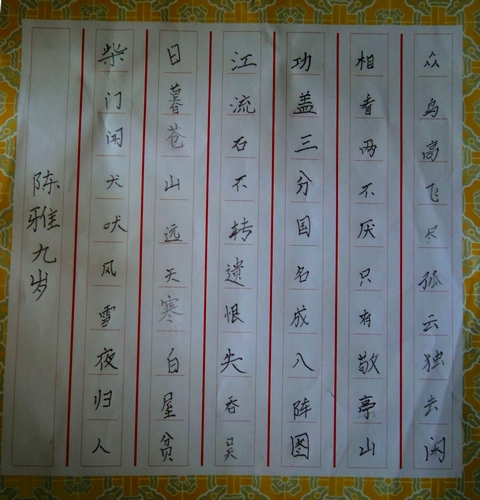 众鸟高飞尽孤云独去闲
相看两不厌只有敬亭山
功盖三分国名成八阵图
江流石不转遗恨失吞吴
日暮苍山远天寒白星贫
柴门闻犬吠风雪夜归人
陈雅九岁